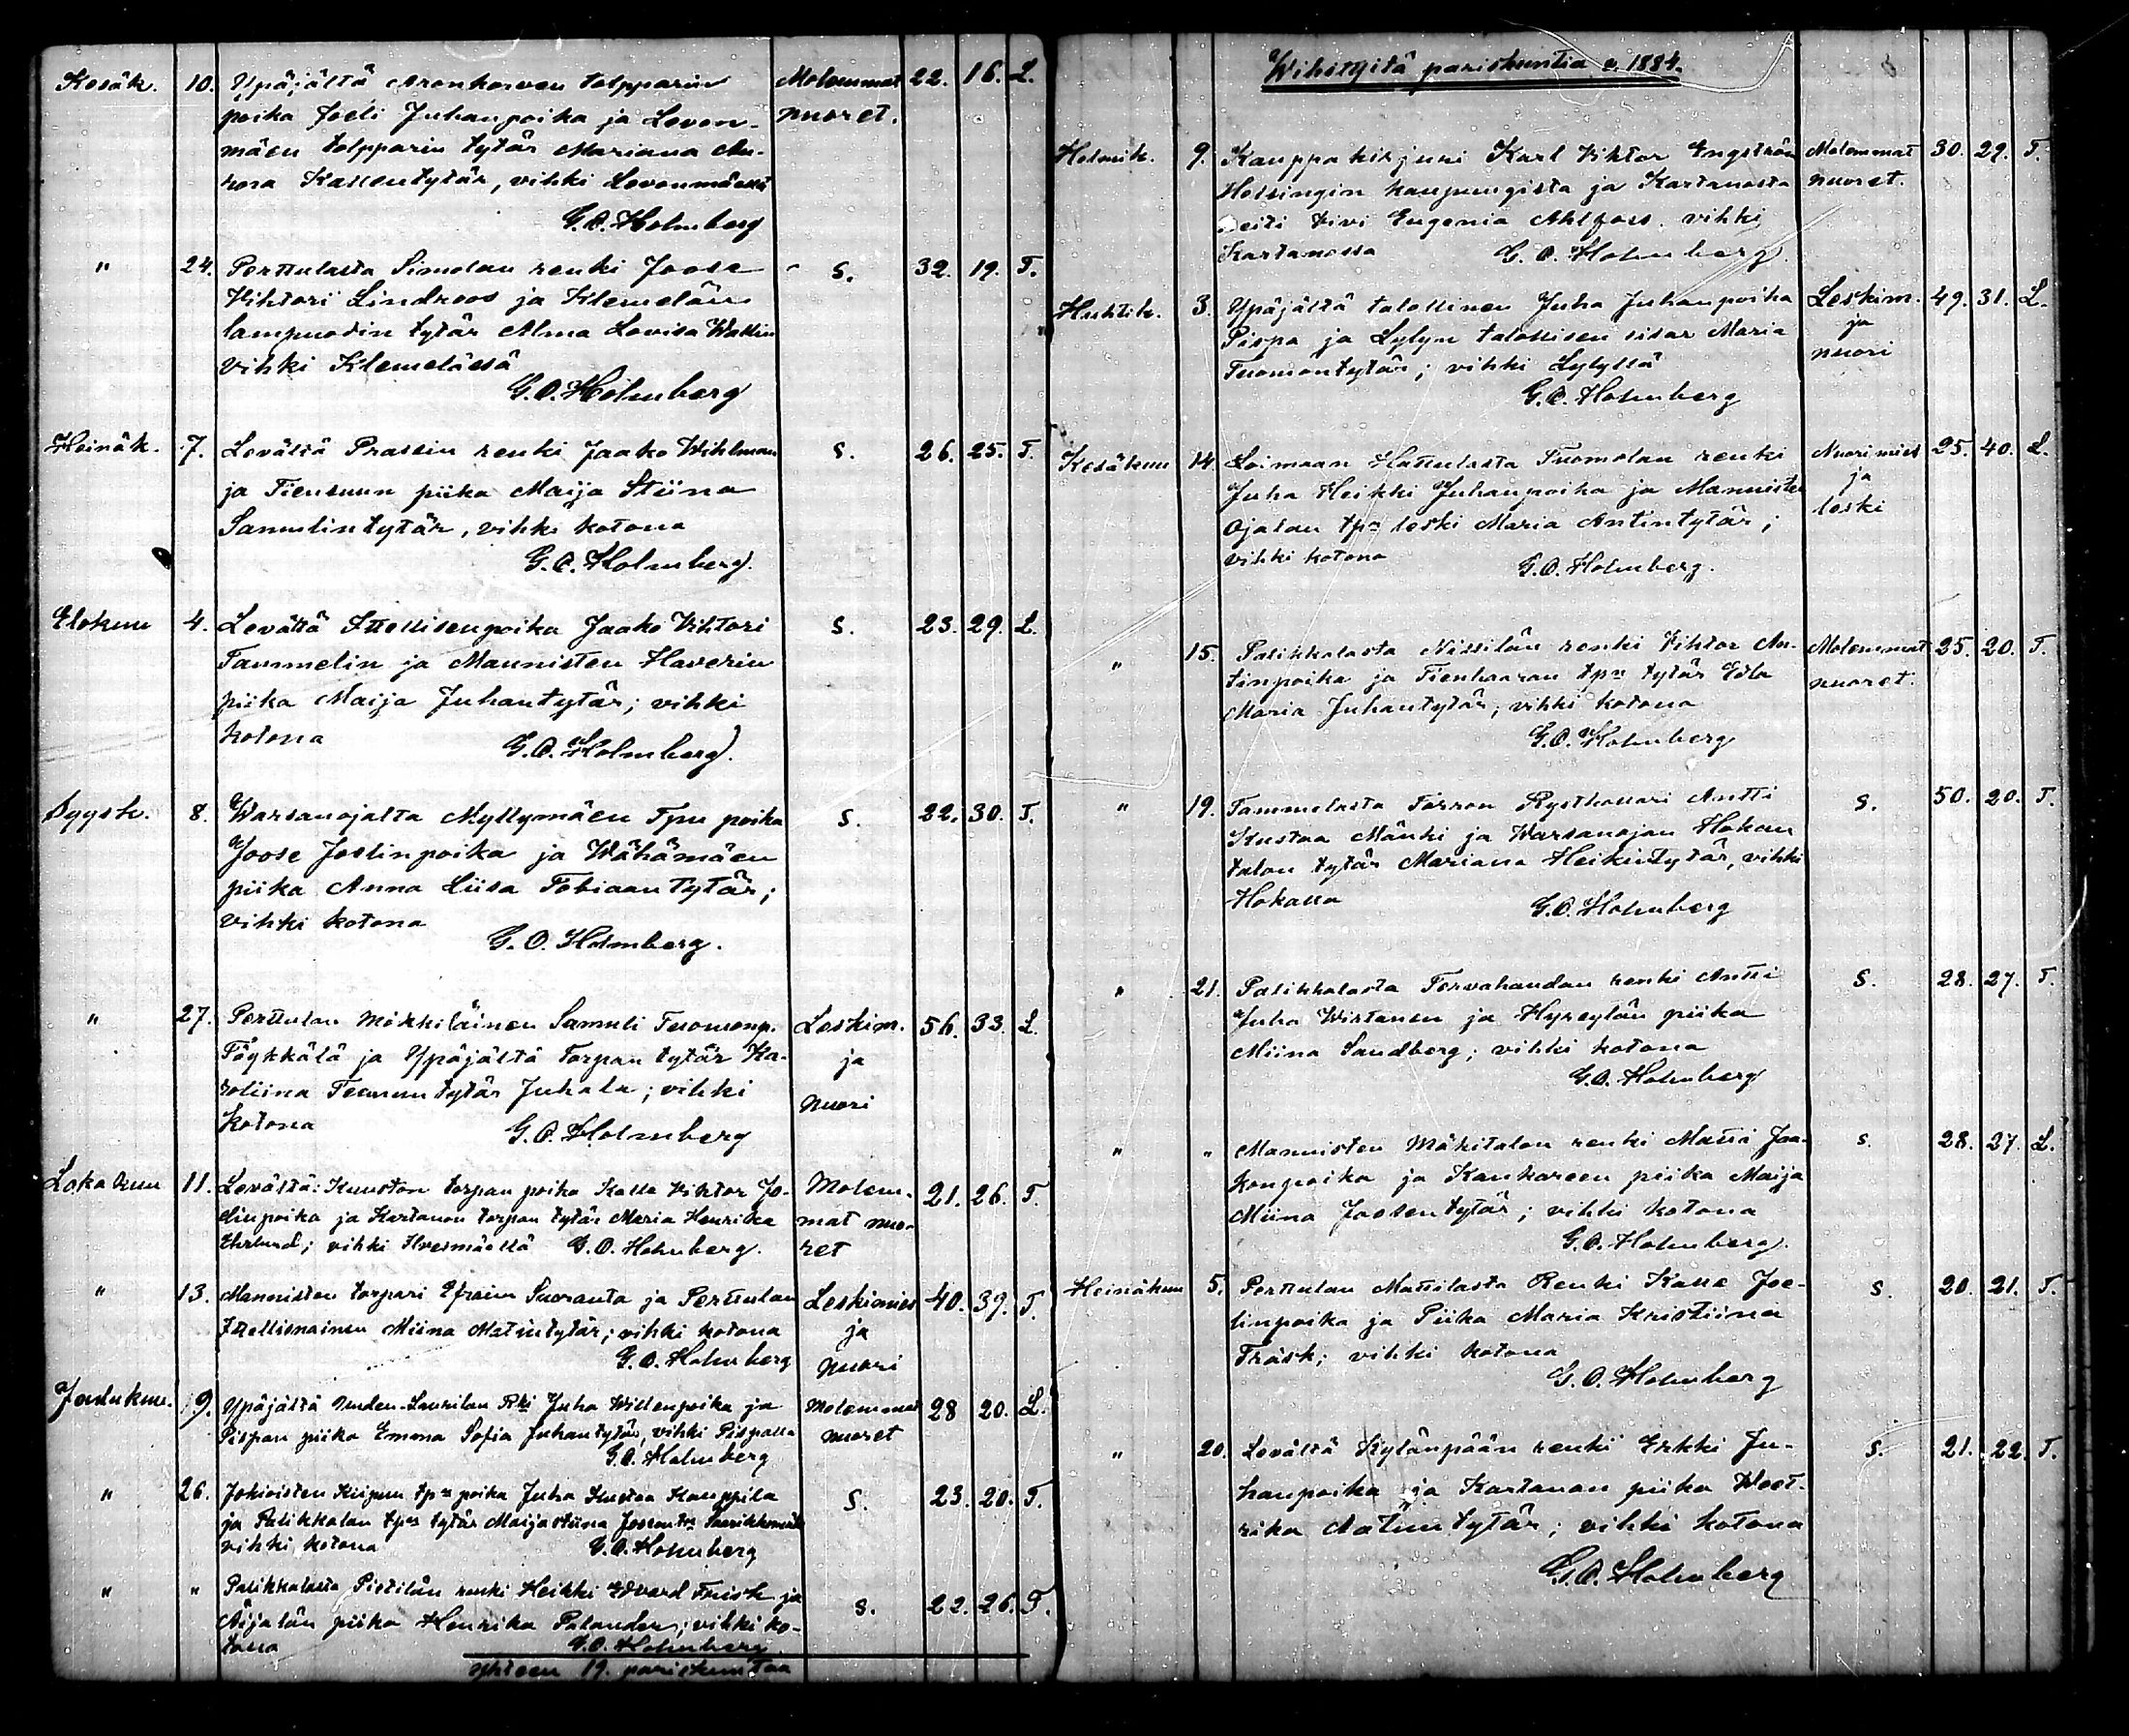 Kesäk. 10. Ypäjältä Aronkorven torpparin Molemmat 22. 16. L.
poika Joeli Juhanpoika ja Levon- nuoret.
mäen torpparin tytär Mariana Au-
rora Kallentytär, vihki Levonmäellä
G.O. Holmberg
" 24. Perttulasta Simolan renki Joose s. 32. 19. T.
Vihtori Lindroos ja Klemelän
lampuodin tytär Alma Lovisa Wallin
vihki Klemelässä
G.O. Holmberg
Heinäk. 7. Levältä Prassin renki Jaako Wihlman s. 26. 25. T.
ja Tiensuun piika Maija Stiina
Samulintytär, vihki kotona
G.O. Holmberg.
Elokuu 4. Levältä Ittellisenpoika Jaako Vihtori s. 23. 29. L.
Tammelin ja Mannisten Haverin
piika Maija Juhantytär; vihki
kotona G.O. Holmberg.
Syysk. 8. Warsanojalta Myllymäen Tpn poika s. 22. 30. T.
Joose Joelinpoika ja Wähämäen
piika Anna Liisa Tobiaantytär;
vihki kotona
G.O. Holmberg.
" 27. Perttulan Mökkiläinen Samuli Tuomonp. Leskim. 56. 33. L.
Töykkälä ja Ypäjältä Torpan tytär Ka- ja
roliina Teemuntytär Juhala; vihki nuori
kotona G.O. Holmberg
Lokakuu 11. Levältä: Kuuston torpan poika Kalle Viktor Jo- Molem- 21. 26. T.
elinpoika ja Kartanon torpan tytär Maria Henrika mat nuo-
vihki Ilvesmäellä G.O. Holmberg. ret
" 13. Mannisten torpari Efraim Suoranta ja Perttulan Leskimies 40. 39. T.
Ittellisnainen Miina Matintytär; vihki kotona ja
G.O. Holmberg nuori
Joulukuu. 9. Ypäjältä Uuden-Laurilan Rki Juha Willenpoika ja Molemmat 28 20. L.
Pispan piika Emma Sofia Juhantytär, vihki Pispalla nuoret
G.O. Holmberg
" 26. Jokioisten Kiipun tpn poika Juha Kustaa Kauppila s. 23. 20. T.
ja Palikkalan tpn tytär Maija Stiina Joosentr
vihki kotona G.O. Holmberg
" " Palikkalasta Pietilän renki Heikki Edvard Frisk ja s. 22. 26. T.
Äijälän piika Henrika Palander; vihki ko-
tona G.O. Holmberg
yhteen 19. pariskuntaa
Wihittyitä pariskuntia v. 1884.
Helmik. 9. Kauppakirjuri Karl Viktor Engström Molemmat 30. 29. T.
Helsingin kaupungista ja Kartanosta nuoret.
neiti Vivi Eugenia Ahlfors. vihki
Kartanossa G.O. Holmberg.
Huhtik. 3. Ypäjältä talollinen Juha Juhanpoika Leskim. 49. 31. L.
Pispa ja Lylyn talollisen sisar Maria ja
Tuomontytär; vihki Lylyllä nuori
G.O. Holmberg
Kesäkuu 14 Loimaan Hattulasta Tuomolan renki Nuorimies 25. 40. L.
Juha Heikki Juhanpoika ja Mannisten ja
Ojalan tpn leski Maria Antintytär; leski
vihki kotona G.O. Holmberg.
" 15. Palikkalasta Nissilän renki Viktor An- Molemmat 25. 20. T.
tinpoika ja Tienhaaran tpn tytär Edla nuoret.
Maria Juhantytär; vihki kotona
G.O. Holmberg
" 19. Tammelasta Torron Rysthollari Antti s. 50. 20. T.
Kustaa Mänki ja Warsanojan Hokan
talon tytär Mariana Heikintytär, vihki
Hokalla G.O. Holmberg
" 21. Palikkalasta Tervahaudan renki Antti s. 28. 27. T.
Juha Wirtanen ja Hyreylän piika
Miina Sandberg; vihki kotona
G.O. Holmberg
" " Mannisten Mäkitalon renki Matti Jaa- s. 28. 27. L.
konpoika ja Kankareen piika Maija
Miina Joosentytär; vihki kotona
G.O. Holmberg.
Heinäkuu 5. Perttulan Mattilasta Renki Kalle Joe- s. 20. 21. T.
linpoika ja Piika Maria Kristiina
Träsk; vihki kotona
G.O. Holmberg
" 20. Levältä Kylänpään renki Erkki Ju- s. 21. 22. T.
hanpoika ja Kartanon piika Weet-
rika Aatuntytär; vihki kotona
G.O. Holmberg